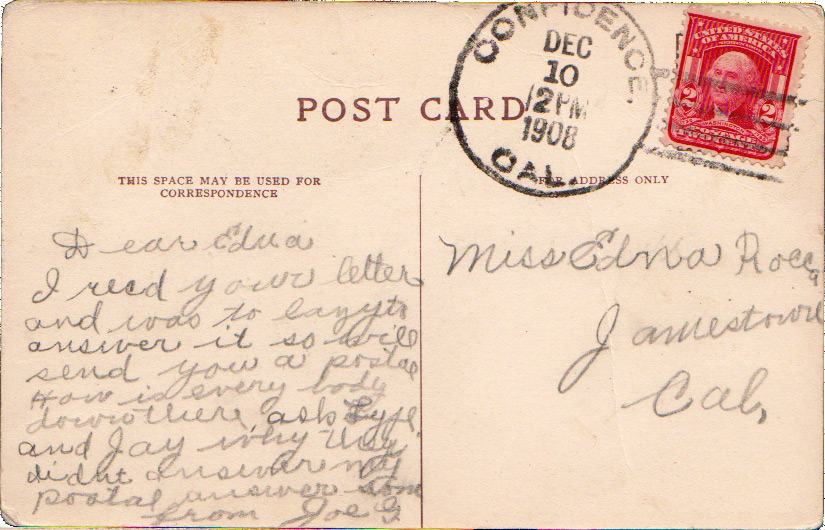 CONFIDENCE.
DEC
10
12 PM
1908
CAL.
UNITED STATES
OF AMERICA
2 2
POSTAGE
TWO CENTS
POST CARD
THIS SPACE MAY BE USED FOR
CORRESPONDENCE
FOR ADDRESS ONLY
Dear Edna
I recd your letter
and was to lazy to
answer it so will
send you a postal
How is every body
down there, ask
and Jay why they
didnt answer my
postal answer soon
from Joe G
Miss Edna Rocca
Jamestown
Cal,